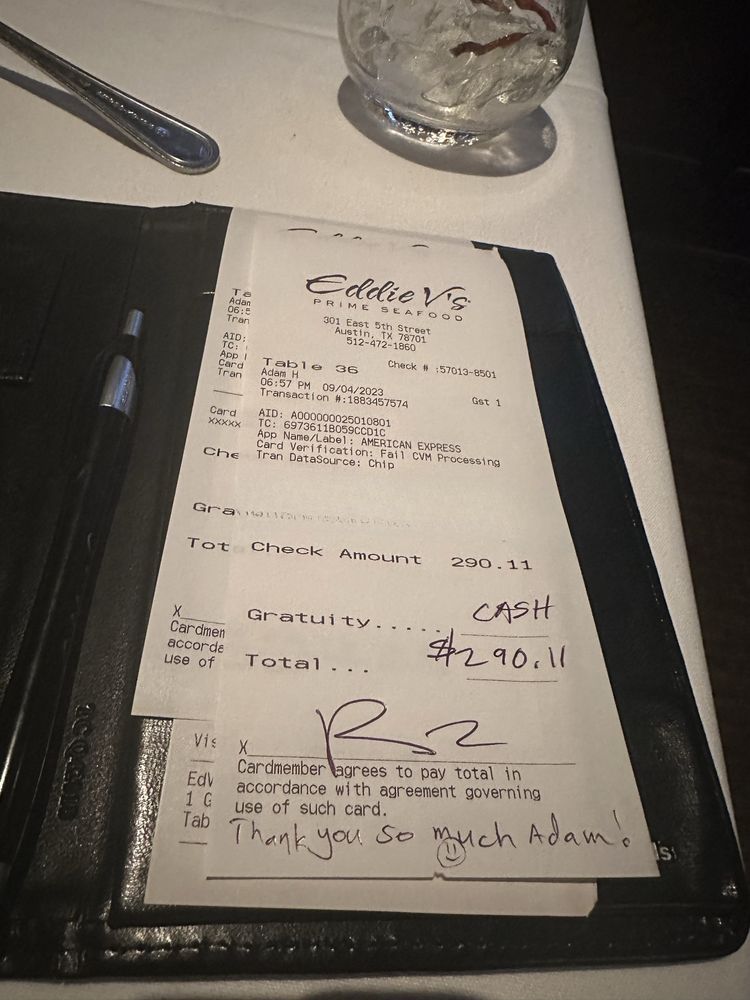 Eddie V's
PRIME SEAFOOD
301 East 5th Street
Austin, TX 78701
512-472-1860
Table 36 Check # :57013-8501
Adam H
06:57 PM 09/04/2023 Gst 1
Transaction #:1883457574
AID: A000000025010801
TC: 6973611B059CCD1C
App Name/Label: AMERICAN EXPRESS
Card Verification: Fail CVM Processing
Tran DataSource: Chip
Check Amount 290.11
Gratuity..... CASH
Total... $290.11
X
Cardmember agrees to pay total in
accordance with agreement governing
use of such card.
Thank you so much Adam!
Ta
Adam
06:5
Tran
AID:
TC:
App
Card
Tran
Card
XXXXX
Che
Gra
Tot
X
Cardmem
accorda
use of
Vis
Edv
1 G
Tab